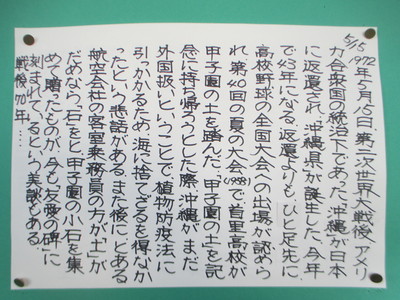 5/15
1972年5月15日、第二次世界大戦後、アメリ
カ合衆国の統治下であった、沖縄が日本
に返還され「沖縄県」が誕生した。今年
で43年になる。返還よりも、ひと足先に
高校野球の全国大会への出場が認めら
れ、第40回の夏の大会(1958)で、首里高校が
甲子園の土を踏んだ。「甲子園の土」を記
念に持ち帰ろうとした際、沖縄が、まだ
外国扱いということで、植物防疫法に
引っかかるため、海に捨てざるを得なか
ったという悲話がある。また後に、とある
航空会社の客室乗務員の方が「土」が
だめなら、「石」をと、甲子園の小石を集
めて贈ったものが、今も「友愛の碑」に
刻まれているという、美談もある。
戦後70年・・・・